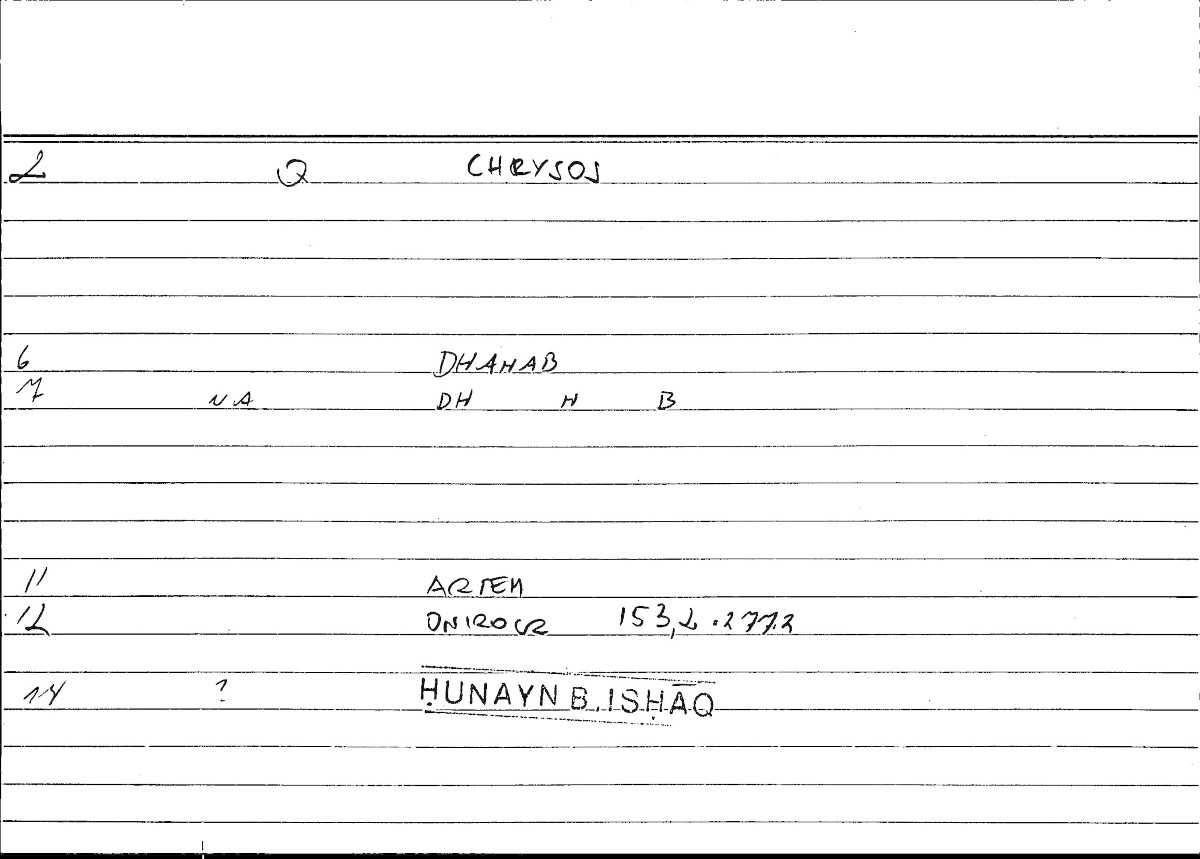 2 Q CHRYSOS
6 DHAHAB
7 NA DH H B
11 ARTEM
12 ONIROCR 153,2 . 277.2
14 ? ḤUNAYN B. ISḤĀQ